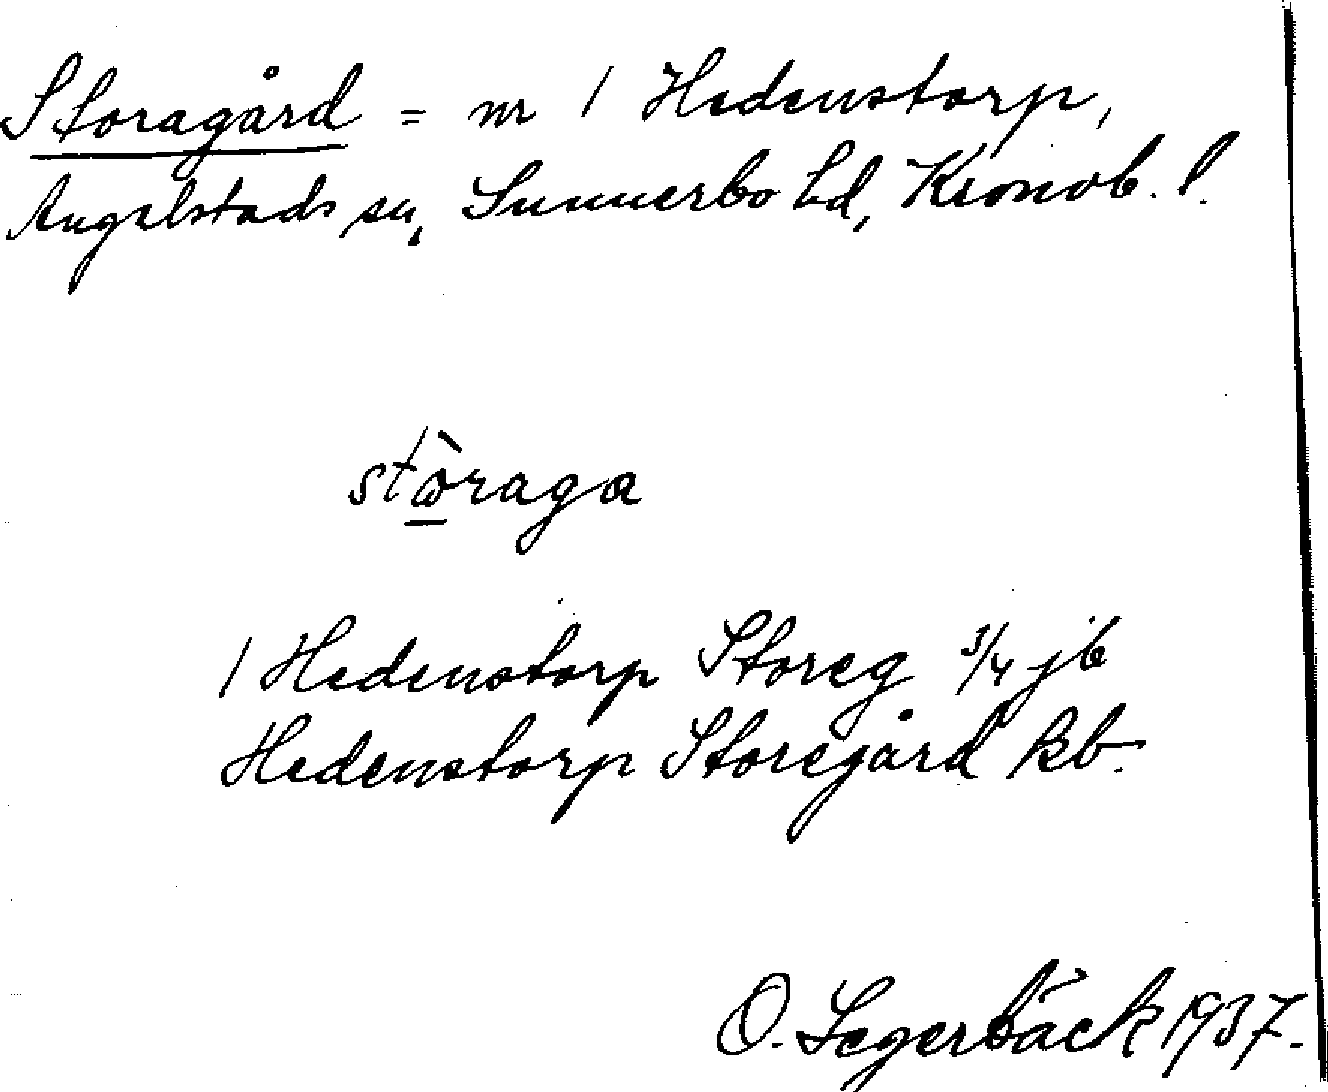 Storagård = nr 1 Hedenstorp,
Angelstads sn, Sunnerbo hd, Kronob. l.
stòraga
1 Hedenstorp Storeg 3/4 jb
Hedenstorp Storegård kb.
O. Segerbäck 1937.